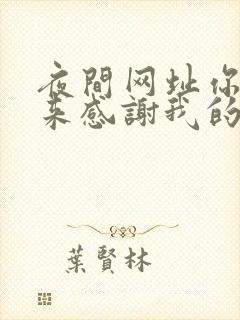 夜間网址你
来感謝我的
葉賢林